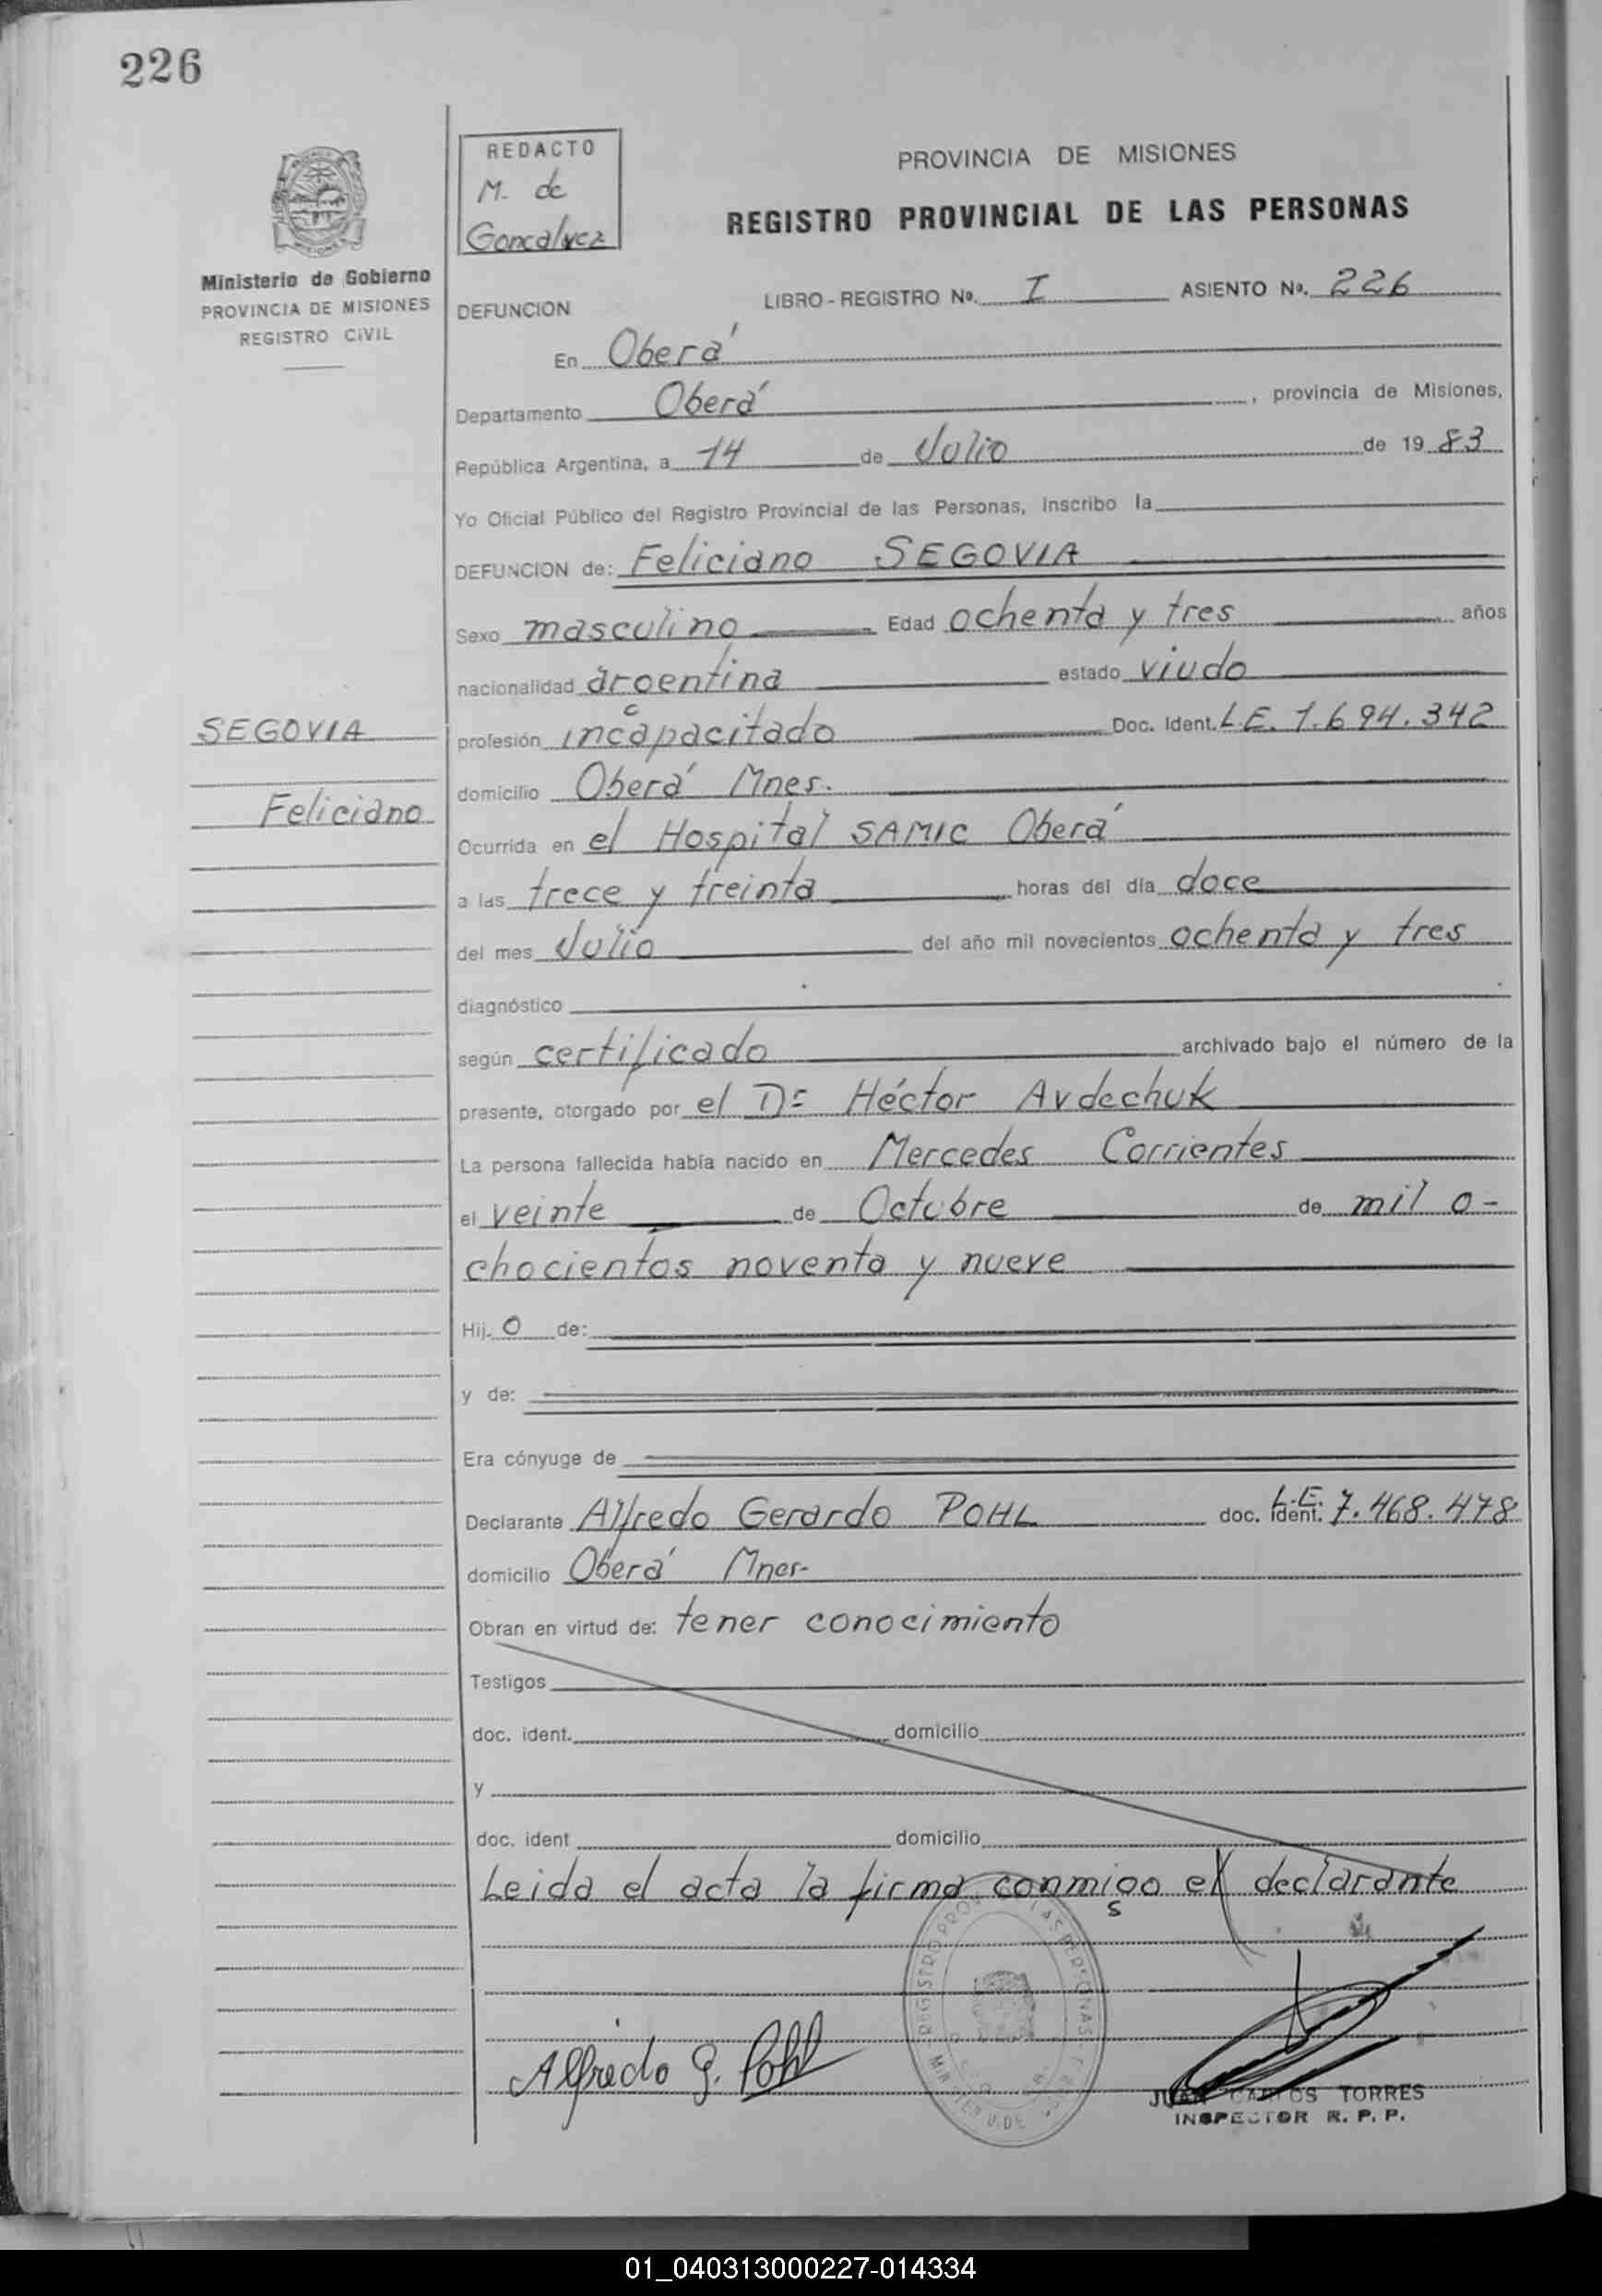 226
REDACTO
M. de
Goncalvez
Ministerio de Gobierno
PROVINCIA DE MISIONES
REGISTRO CIVIL
PROVINCIA DE MISIONES
REGISTRO PROVINCIAL DE LAS PERSONAS
DEFUNCION LIBRO - REGISTRO Nº. I ASIENTO Nº. 226
En Oberá
Departamento Oberá , provincia de Misiones,
República Argentina, a 14 de Julio de 19 83
Yo Oficial Público del Registro Provincial de las Personas, inscribo la
DEFUNCION de: Feliciano SEGOVIA
Sexo masculino Edad ochenta y tres años
nacionalidad argentina estado viudo
SEGOVIA
profesión incapacitado Doc. Ident. L.E. 1.694.342
domicilio Oberá Mnes.
Feliciano
Ocurrida en el Hospital SAMIC Oberá
a las trece y treinta horas del día doce
del mes Julio del año mil novecientos ochenta y tres
diagnóstico
según certificado archivado bajo el número de la
presente, otorgado por el Dr Héctor Avdechuk
La persona fallecida había nacido en Mercedes Corrientes
el veinte de Octubre de mil o-
chocientos noventa y nueve
Hij. o de:
y de:
Era cónyuge de
Declarante Alfredo Gerardo POHL doc. ident. L.E. 7.468.478
domicilio Oberá Mnes-
Obran en virtud de: tener conocimiento
Testigos
doc. ident. domicilio
y
doc. ident domicilio
Leida el acta la firma conmigo el declarante
Alfredo G. Pohl
JUAN CARLOS TORRES
INSPECTOR R. P. P.
01_040313000227-014334